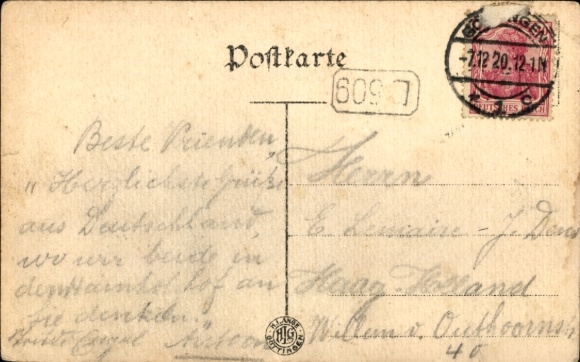 Postkarte
GÖTTINGEN
-7.12.20.12-1.N
* 1 c
DEUTSCHES REICH
Beste Vrienden,
"Herzlichste Grüße
aus Deutschland,
wo wir beide in
dem Hainholzhof an
Sie denken."
Antoon
Herrn
E Lemaire - J.
Haag Holland
Willem v. Outhoornstr
40
H. LANGE
GÖTTINGEN